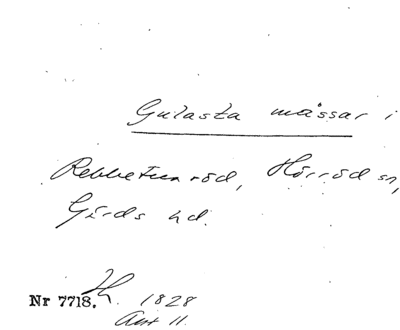 Gulasta mässar i
Rebbetuaröd, Hörröd sn,
Gärds hd.
Nr 7718. H. 1828
Avt 11.